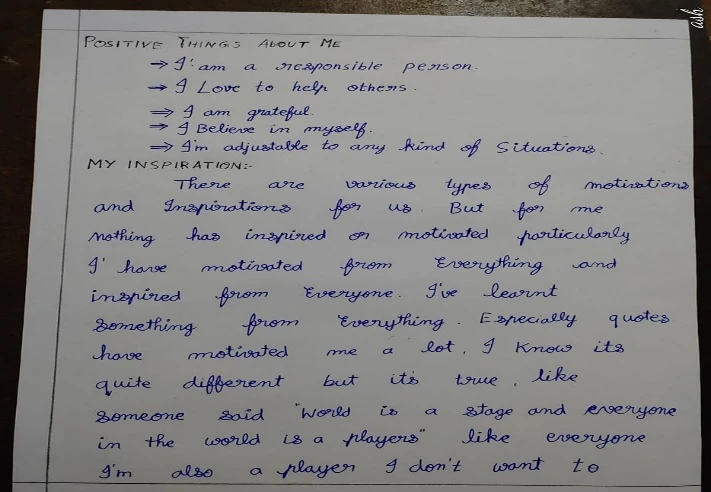 ash
POSITIVE THINGS ABOUT ME
→ I' am a responsible person.
→ I Love to help others.
⇒ I am grateful.
⇒ I Believe in myself.
⇒ I'm adjustable to any kind of Situations.
MY INSPIRATION:-
There are various types of motivations
and Inspirations for us. But for me
nothing has inspired or motivated particularly
I' have motivated from Everything and
inspired from Everyone. I've learnt
Something from Everything. Especially quotes
have motivated me a lot, I Know its
quite different but its true, like
Someone Said "World is a stage and everyone
in the world is a players" like everyone
I'm also a player I don't want to